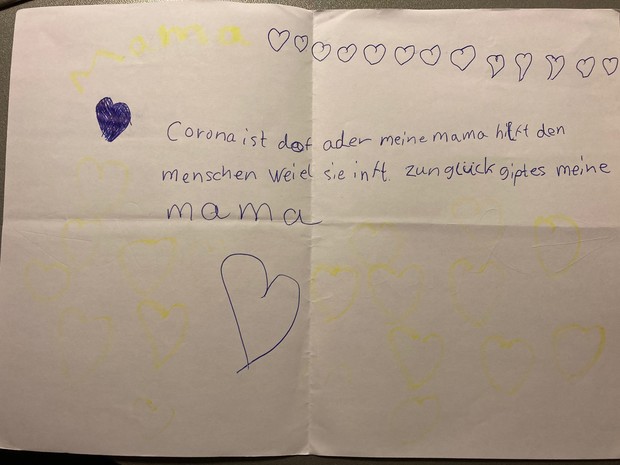 Mama
Corona ist dof ader meine mama hilft den
menschen weiel sie inft. zunglück giptes meine
mama